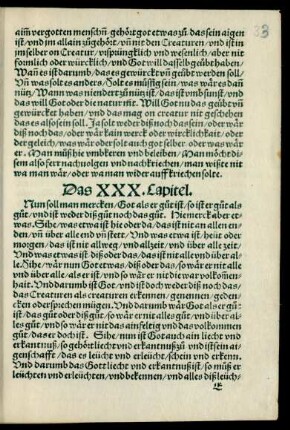 aim vergotten menschñ gehört got etwas zů das sein aigen
ist/vnd im allain zůgehört/vñ nit den Creaturen/vnd ist in
jm selber on Creatur/vrsprüngklich vnd wesenlich/aber nit
formlich oder würcklich/vnd Got will dasselb geübt haben/
Wañ es ist darumb/das es gewürckt vñ geübt werden soll/
Vñ was solt es anders/Solt es müssig sein/was wår es dañ
nütz/Wann was niendert zů nütz ist/das ist vmb sunst/vnd
das will Got oder die natur nit. Will Got nu das geübt vñ
gewürcket haben/vnd das mag on creatur nit geschehen
das es also sein soll. Ja solt weder diß noch das sein/oder wår
diß noch das/oder wår kain werck oder wircklichkeit/oder
der geleich/was wår oder solt auch got selber/oder was wår
er. Man můß hie vmbkeren vnd beleiben/Man möcht di-
sem also ferr nachuolgen vnd nachkriechen/man wißte nit
wa man wår/oder wa man wider auff kriechen solte.
Das XXX. Capitel.
Nun soll man mercken/Got als er gůt ist/so ist er gůt als
gůt/vnd ist weder diß gůt noch das gůt. Hie merck aber et-
was. Sihe/was etwa ist hie oder da/das ist nit an allen en-
den/vñ über alle end vñ stett. Vnd was etwa ist/heüt oder
morgen/das ist nit allweg/vnd allzeit/vnd über alle zeit/
Vnd was etwas ist diß oder das/das ist nit alle vnd über al-
le. Sihe/wår nun Got etwas/diß oder das/so wår er nit alle
vnd über alle/als er ist/vnd so wår er nit die war volkomen-
hait. Vnd darumb ist Got/vnd ist doch weder diß noch das/
das Creatur als creaturen erkennen/genennen/geden-
cken oder sprechen mügen. Vnd darumb wår Got als er gůt
ist/das gůt oder diß gůt/so wår er nit alles gůt/vnd über al-
les gůt/vnd so wår er nit das ainfeltig vnd das volkommen
gůt/das er doch ist. Sihe/nun ist Got auch ain liecht vnd
erkantnuß/so gehört liecht vnd erkantnuß zů/vnd ist sein ai-
genschafft/das es leücht vnd erleücht/schein vnd erkenn.
Vnd darumb das Got liecht vnd erkantnuß ist/so můß er
leüchten vnd erleüchten/vnd bekennen/vnd alles diß leüch-